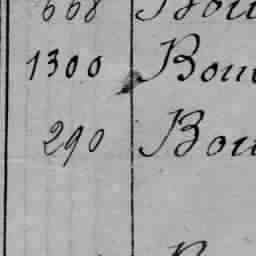 668 Bou
1300 Bou
290 Bou